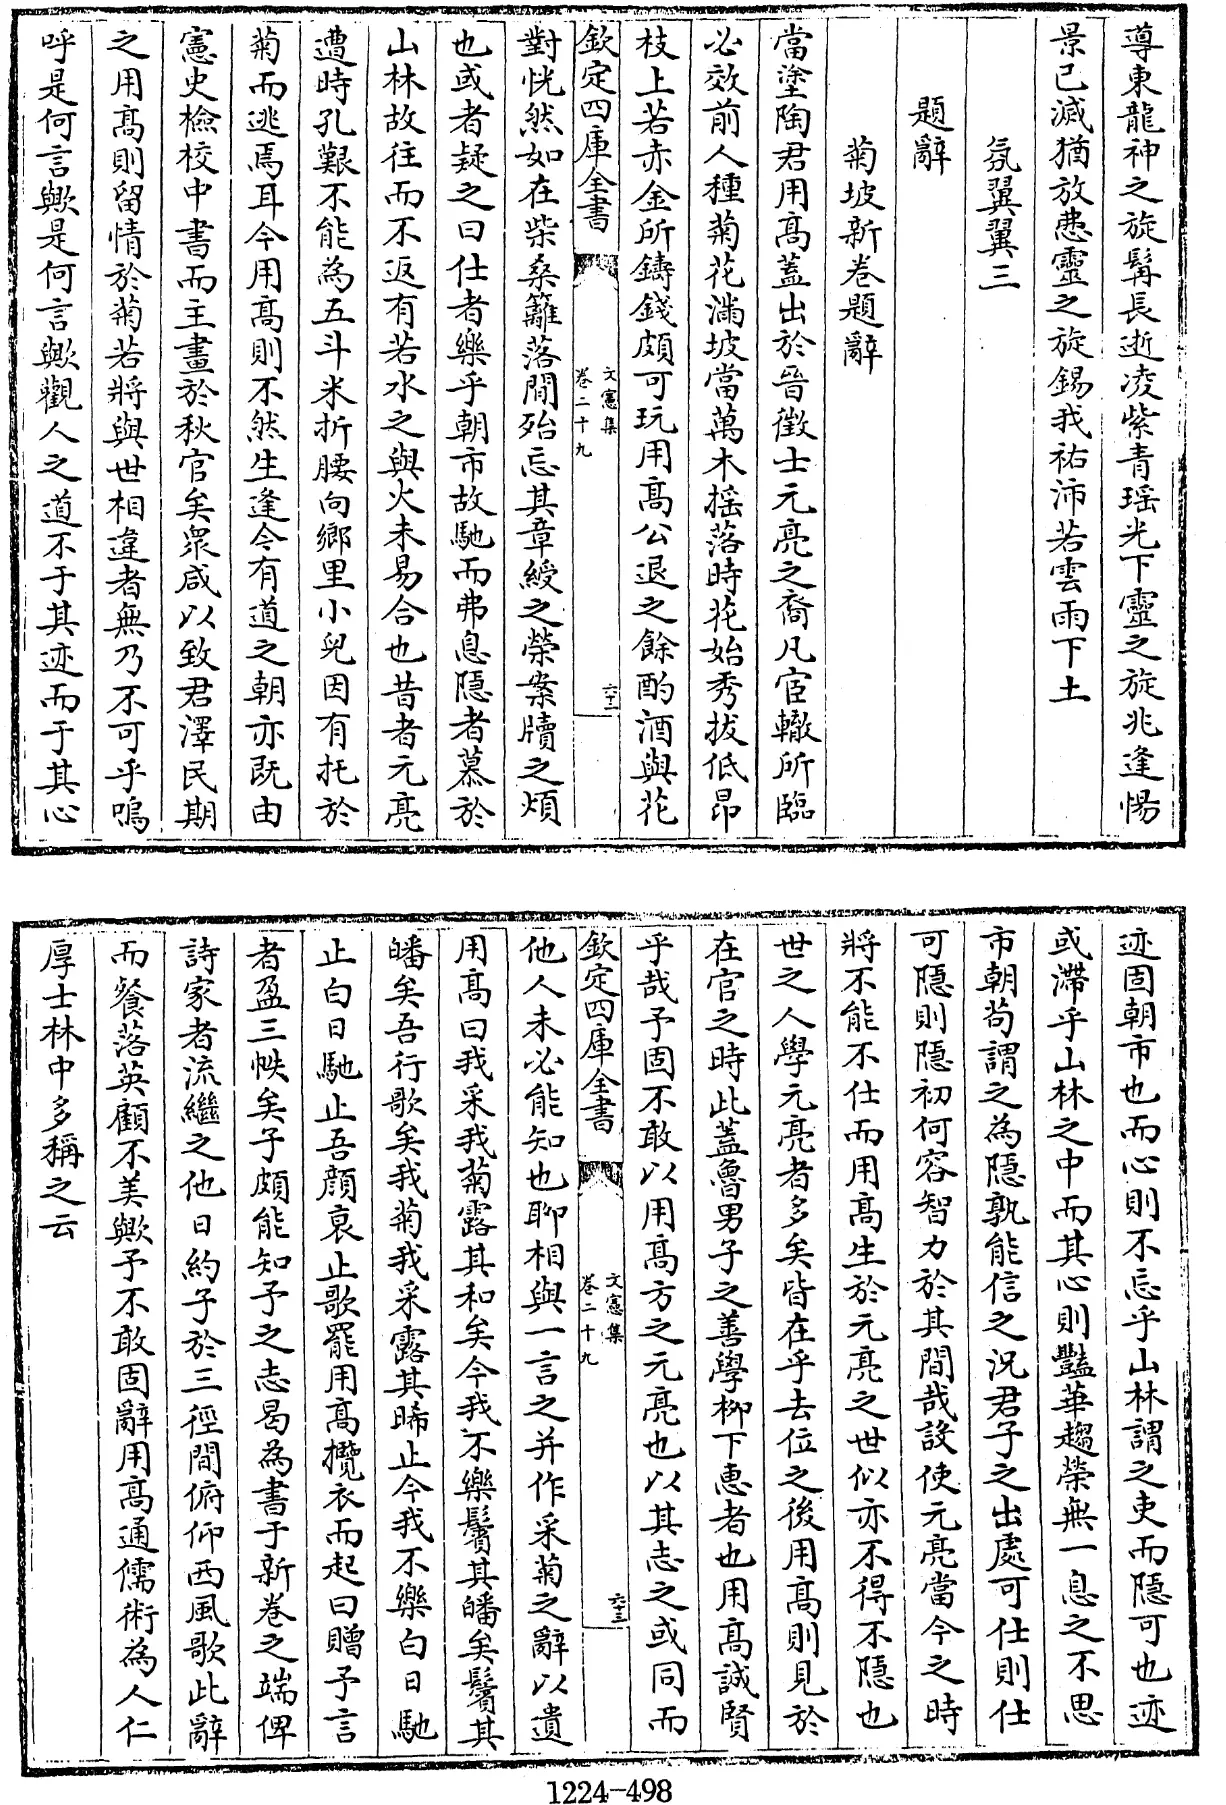 導東龍神之旋髯長逝凌紫青瑶光下靈之旋兆逢惕
景已滅猶放悲靈之旋錫我祐沛若雲雨下土
氛翼翼三
題辭
菊坡新卷題辭
當塗陶君用高蓋出於晉徵士元亮之裔凡宦轍所臨
必效前人種菊花滿坡當萬木摇落時花始秀拔低昂
枝上若赤金所鑄錢頗可玩用高公退之餘酌酒與花
欽定四庫全書
文憲集
卷二十九
六十二
對恍然如在柴桑籬落間殆忘其章綬之榮案牘之煩
也或者疑之曰仕者樂乎朝市故馳而弗息隱者慕於
山林故往而不返有若水之與火未易合也昔者元亮
遭時孔艱不能為五斗米折腰向鄉里小兒因有托於
菊而逃焉耳今用高則不然生逢今有道之朝亦既由
憲史檢校中書而主畫於秋官矣衆咸以致君澤民期
之用高則留情於菊若將與世相違者無乃不可乎嗚
呼是何言歟是何言歟觀人之道不于其迹而于其心
迹固朝市也而心則不忘乎山林謂之吏而隱可也迹
或滯乎山林之中而其心則豔華趨榮無一息之不思
市朝苟謂之為隱孰能信之況君子之出處可仕則仕
可隱則隱初何容智力於其間哉設使元亮當今之時
將不能不仕而用高生於元亮之世似亦不得不隱也
世之人學元亮者多矣皆在乎去位之後用高則見於
在官之時此蓋魯男子之善學柳下惠者也用高誠賢
乎哉予固不敢以用高方之元亮也以其志之或同而
欽定四庫全書
文憲集
卷二十九
六十三
他人未必能知也聊相與一言之并作采菊之辭以遺
用高曰我采我菊露其和矣今我不樂鬢其皤矣鬢其
皤矣吾行歌矣我菊我采露其晞止今我不樂白日馳
止白日馳止吾顏衰止歌罷用高攬衣而起曰贈予言
者盈三帙矣子頗能知予之志曷為書于新卷之端俾
詩家者流繼之他日約子於三徑間俯仰西風歌此辭
而餐落英顧不美歟予不敢固辭用高通儒術為人仁
厚士林中多稱之云
1224-498